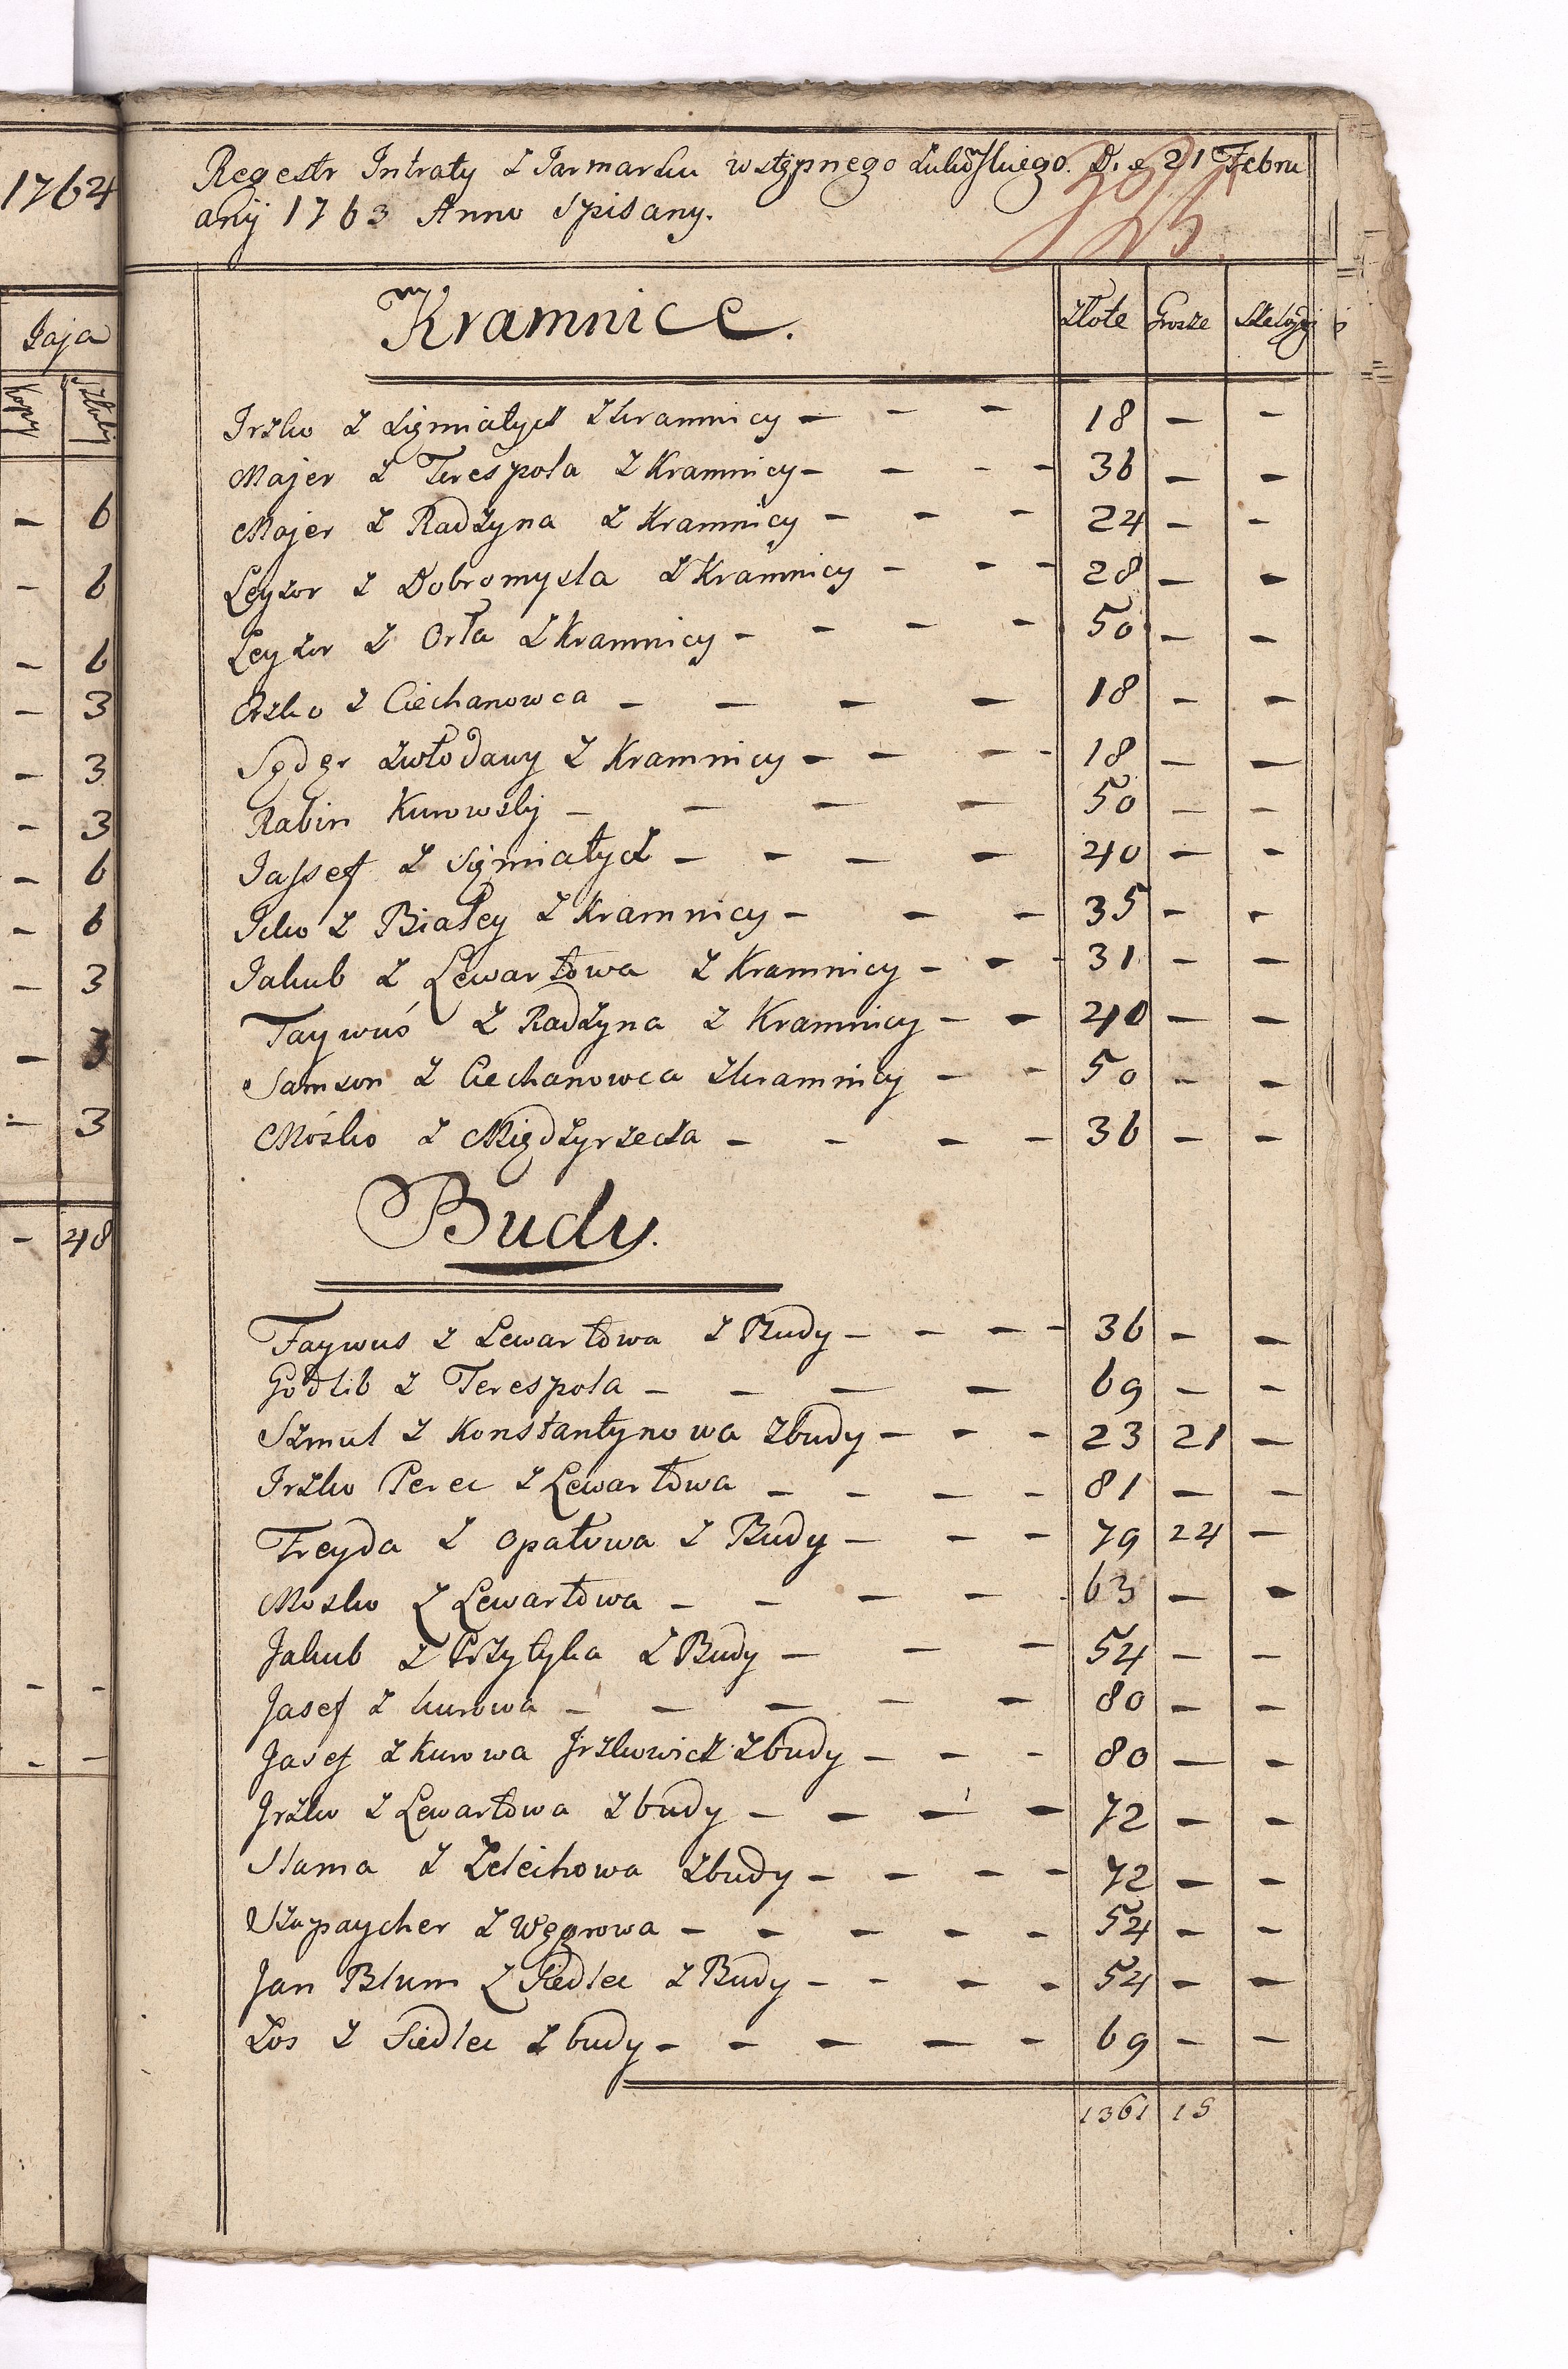 1764
Jaja
Kopy Sztuki
- 6
- 6
- 6
- 3
- 3
- 3
- 6
- 6
- 3
- 3
- 3
- 48
- -
- -
Regestr Intraty z Jarmarku wstępnego Łukowskiego. D. 21 Febru
arij 1763 Anno Spisany.
Kramnice. Złote Grosze Szelągi
Irzko z Siemiatycz z kramnicy - - - 18 - -
Majer z Terespola z Kramnicy - - - - 36 - -
Majer z Radzyna z Kramnicy - - - 24 - -
Leyzor z Dobromysla z Kramnicy - - - 28 - -
Leyzor z Orla z Kramnicy - - - - 50 - -
Orzko z Ciechanowca - - - - 18 - -
z włodawy z Kramnicy - - - - 18 - -
Rabin Kurowsky - - - - 50 - -
Jassef z Siemiatycz - - - - 40 - -
Icko z Białey z Kramnicy - - - 35 - -
Jakub z Lewartowa z Kramnicy - - - 31 - -
Faywuś z Radzyna z Kramnicy - - 40 - -
Samson z Ciechanowca z kramnicy - - 50 - -
Mośko z Międzyrzecza - - - - 36 - -
Budy.
Faywus z Lewartowa z Budy - - - - 36 - -
Godlib z Terespola - - - - 69 - -
Szmul z Konstantynowa z budy - - - 23 21 -
Irzko Perec z Lewartowa - - - - 81 - -
Freyda z Opatowa z Budy - - - 79 24 -
Mosko z Lewartowa - - - - 63 - -
Jakub z Przytyka z Budy - - - 54 - -
Jasef z kurowa - - - - - 80 - -
Jasef z Kurowa Jrzkowicz z budy - - - 80 - -
Jrzko z Lewartowa z budy - - - - 72 - -
Slama z Zelechowa z budy - - - - 72 - -
Szpaycher z Węgrowa - - - - - 54 - -
Jan Blum z Siedlec z Budy - - - - 54 - -
Zos z Siedlec z budy - - - - - 69 - -
1361 15